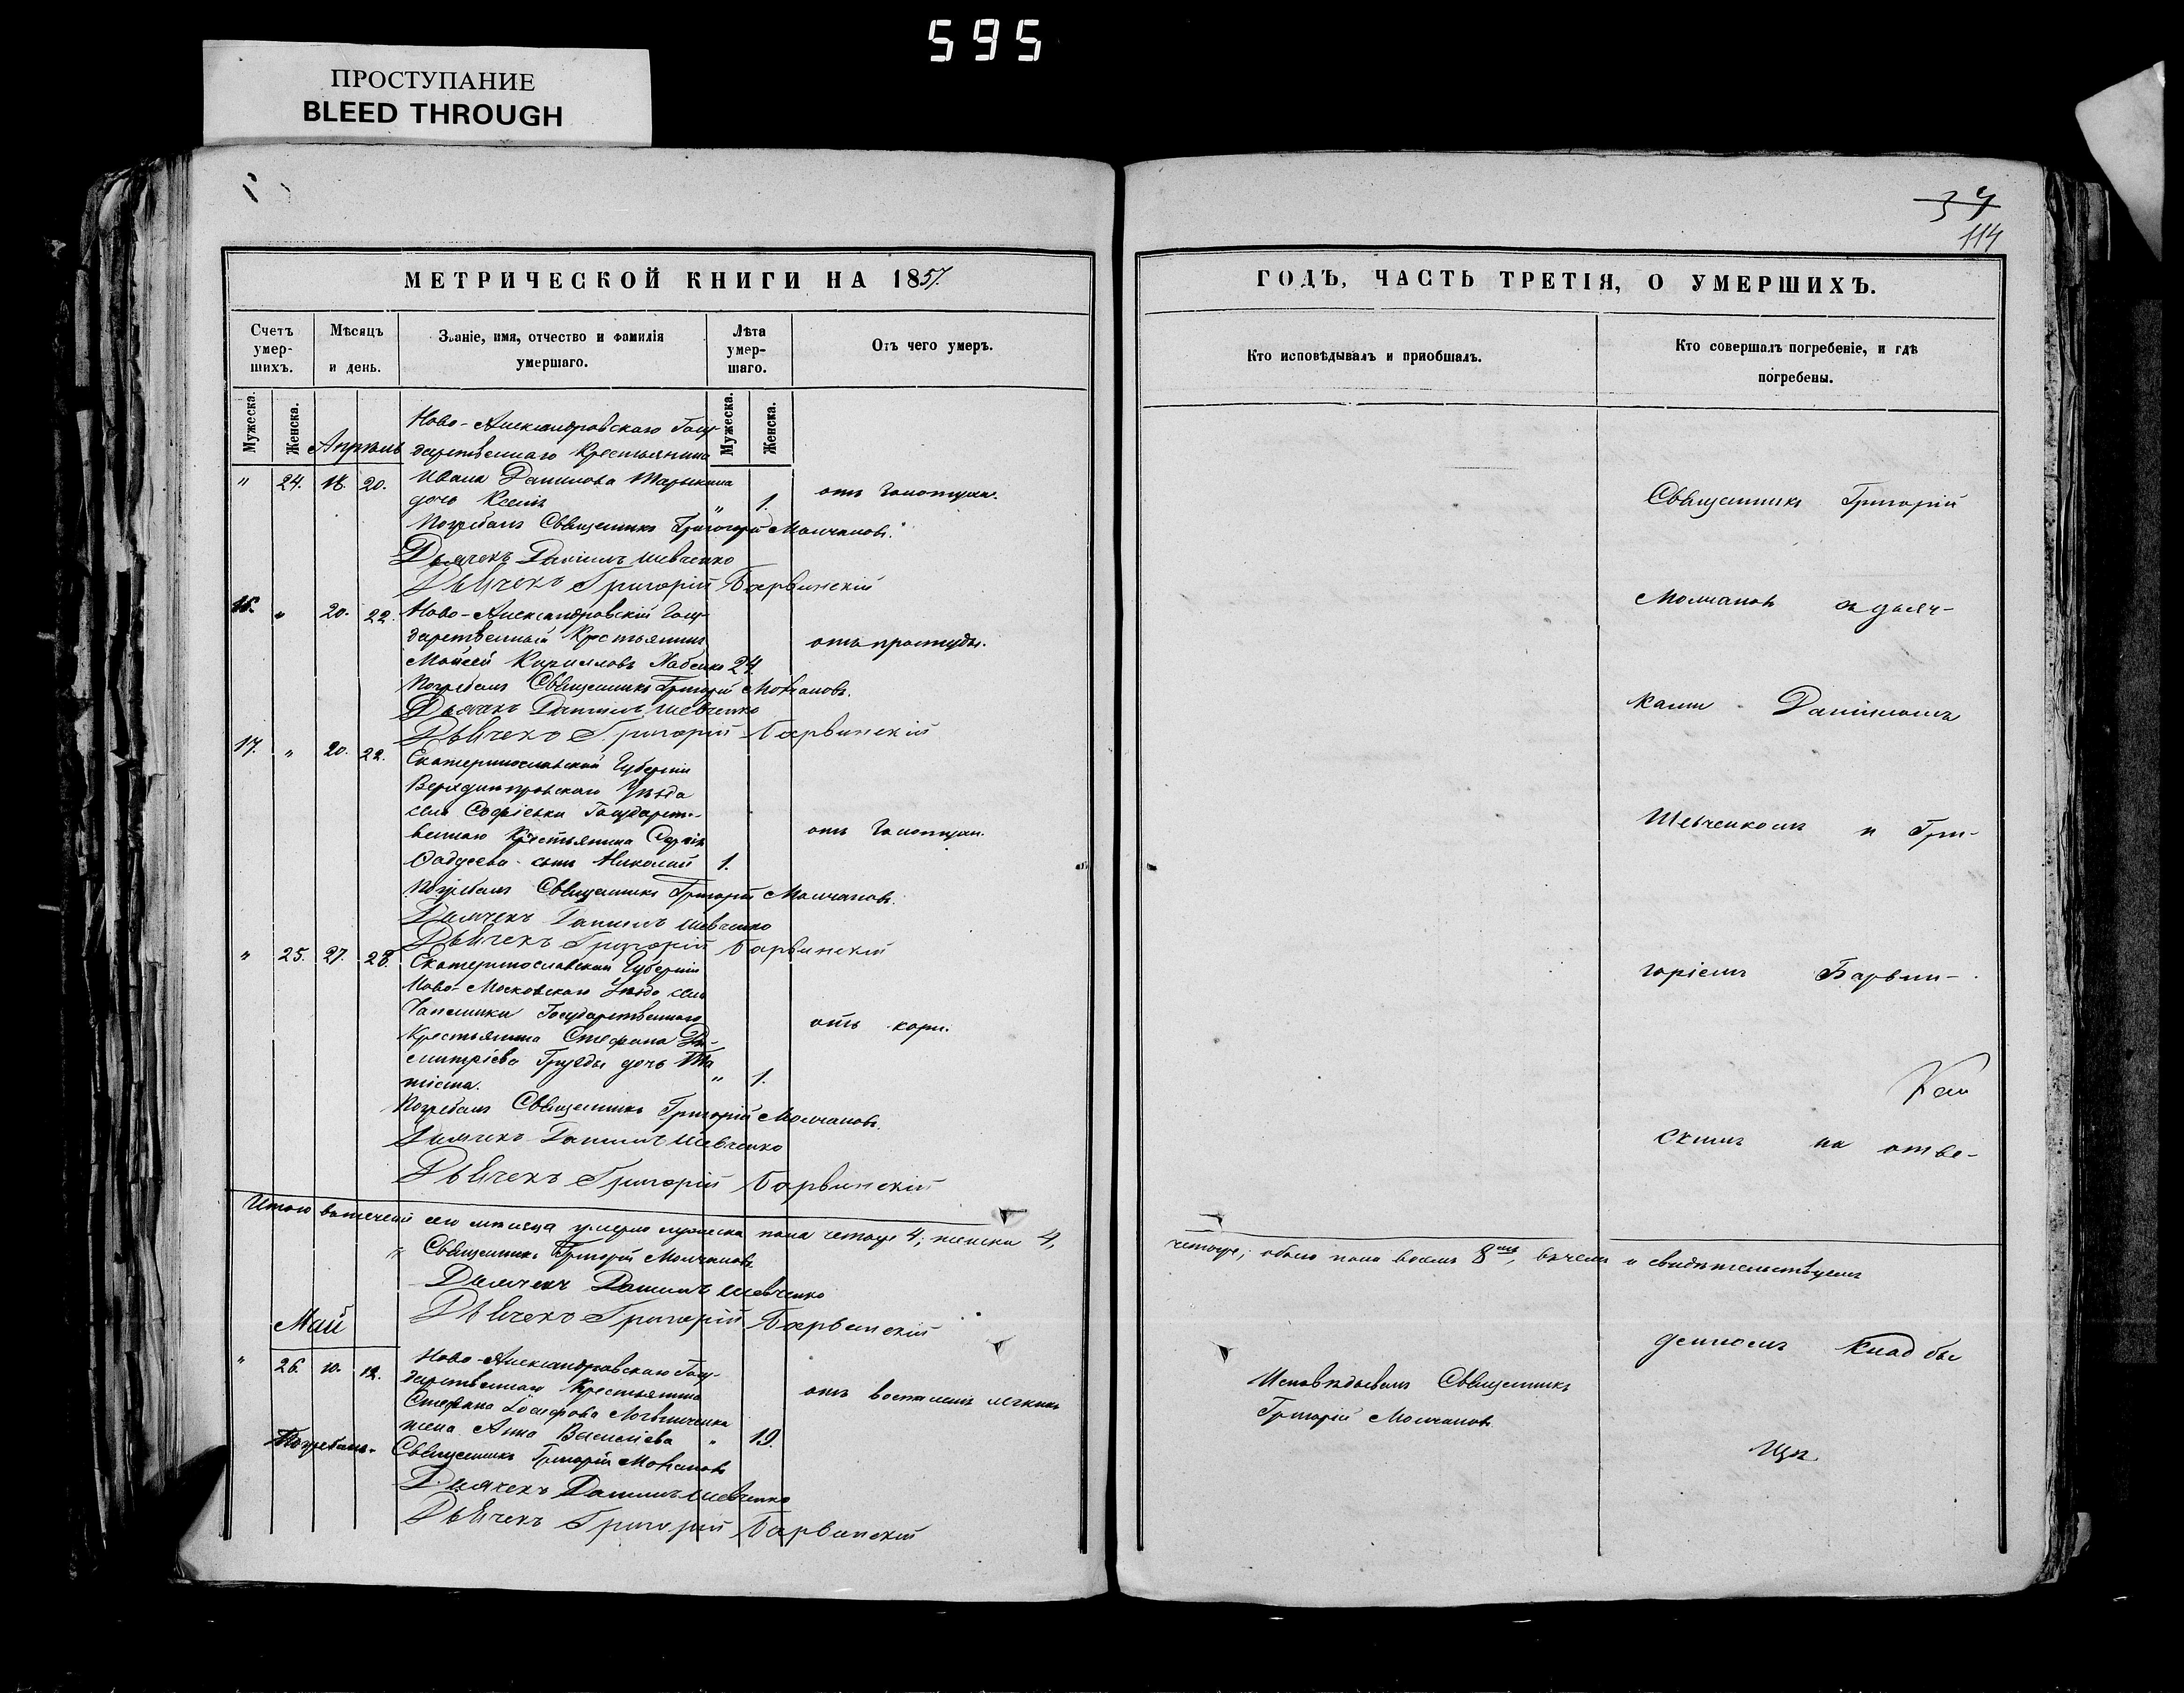 595
ПРОСТУПАНИЕ
BLEED THROUGH
114
МЕТРИЧЕСКОЙ КНИГИ НА 1857.
Счетъ умер-шихъ.
Мѣсяцъ и день.
Званіе, имя, отчество и фамилія умершаго.
Лѣта умер-шаго.
Отъ чего умеръ.
Мужеска.
Женска.
Мужеска.
Женска.
Апрѣль
Ново-Александровскаго Госу-
дарственнаго Крестьянина
" 24. 18. 20. Ивана Данилова
дочь " 1.
Погребалъ Священникъ Григорій Молчановъ.
Дьячекъ Даніилъ Шевченко
Дьячекъ Григорій Барвинскій
16. " 20. 22. Ново-Александровскій Госу-
дарственный Крестьянинъ отъ простуды.
Моисей Кирилловъ 24.
Погребалъ Священникъ Григорій Молчановъ.
Дьячекъ Даніилъ Шевченко
Дьячекъ Григорій Барвинскій
17. " 20. 22. Екатеринославской Губерніи
Верходнипровскаго Уѣзда
села Софіевки Государст-
веннаго Крестьянина Сергія
Фадѣева сынъ Николай 1.
Погребалъ Священникъ Григорій Молчановъ.
Дьячекъ Даніилъ Шевченко
Дьячекъ Григорій Барвинскій
" 25. 27. 28. Екатеринославской Губерніи
Ново-Московскаго Уѣзда села
Государственнаго
Крестьянина Стефана Ди- отъ кори.
митріева дочь Та-
тіана. " 1.
Погребалъ Священникъ Григорій Молчановъ.
Дьячекъ Даніилъ Шевченко
Дьячекъ Григорій Барвинскій
Итого въ теченіи сего мѣсяца умерло мужеска пола четыре 4; женска 4,
Священникъ Григорій Молчановъ
Дьячекъ Даніилъ Шевченко
Дьячекъ Григорій Барвинскій
Май
" 26. 10. 12. Ново-Александровскаго Госу-
дарственнаго Крестьянина отъ воспаленія легкихъ
Стефана
жена Анна Василіева " 19.
Погребалъ Священникъ Григорій Молчановъ
Дьячекъ Даніилъ Шевченко
Дьячекъ Григорій Барвинскій
ГОДЪ, ЧАСТЬ ТРЕТІЯ, О УМЕРШИХЪ.
Кто исповѣдывалъ и пріобщалъ.
Кто совершалъ погребеніе, и гдѣ погребены.
Священникъ Григорій
Молчановъ съ дьяч-
ками Даніиломъ
Шевченкомъ и Гри-
горіемъ Барвин-
скимъ на отве-
четыре; обоего пола восемь 8мь, въ чемъ и свидѣтельствуемъ
денномъ кладби
Исповѣдывалъ Священникъ
Григорій Молчановъ
щѣ